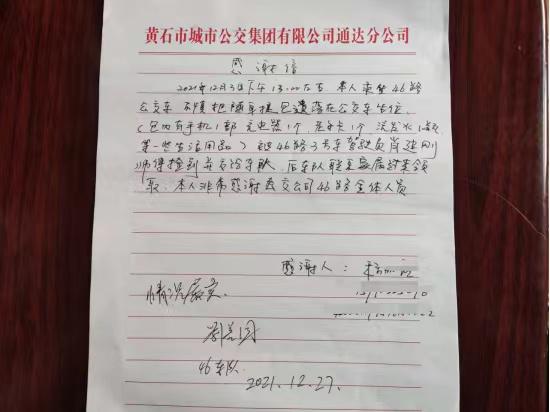 黄石市城市公交集团有限公司通达分公司
感谢信
2021年12月3日下午13:00左右 本人乘坐46路
公交车 不慎把随身提包遗落在公交车坐位
(包内有手机1部 充电器1个 老年卡1个 洗发水1
某一些生活用品) 被46路3号车驾驶员肖建刚
师傅捡到并交给车队 后车队联系
取 本人非常感谢公交公司46路全体人员
感谢人:
情况属实
46车队
2021.12.27.